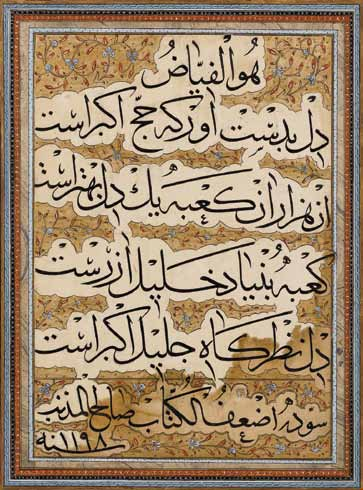 هو الفیاض
دل بدست اور که حج اکبر است
از هزاران کعبه یك دل بهتر است
کعبه بنیاد خلیل ازرست
دل نظرکاه جلیل اکبر است
سوده اضعف الكتاب صالح المذنب
سنه ١١٩٨